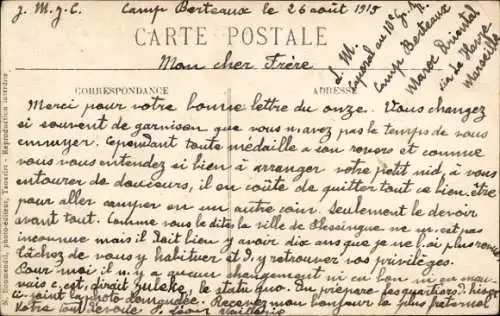 J. M. J. C. Camp Berteaux le 26 août 1915
CARTE POSTALE
Mon cher Frère
L. M.
Caporal au 10e
Camp Berteaux
Maroc Oriental
Marseille
CORRESPONDANCE
ADRESSE
Merci pour votre bonne lettre du onze. Vous changez
si souvent de garnison que vous n'avez pas le temps de vous
ennuyer. Cependant toute médaille a son revers et comme
vous vous entendez si bien à arranger votre petit nid, à vous
entourer de douceurs, il en coûte de quitter tout ce bien être
pour aller camper en un autre coin. Seulement le devoir
avant tout. Comme vous le dites la ville de Flessingue ne m'est pas
inconnue mais il doit bien y avoir dix ans que je ne l'ai plus
tâchez de vous y habituer et d'y retrouver vos privilèges.
Pour moi il n'y a aucun changement ni en bon ni en mau-
vais c'est, dirait le statu quo. On prépare les quartiers d'hiver
ici Recevez mon bonjour le plus fraternel
Votre tout dévoué
N. Boumendil, photo-éditeur, Taourirt - Reproduction interdite.